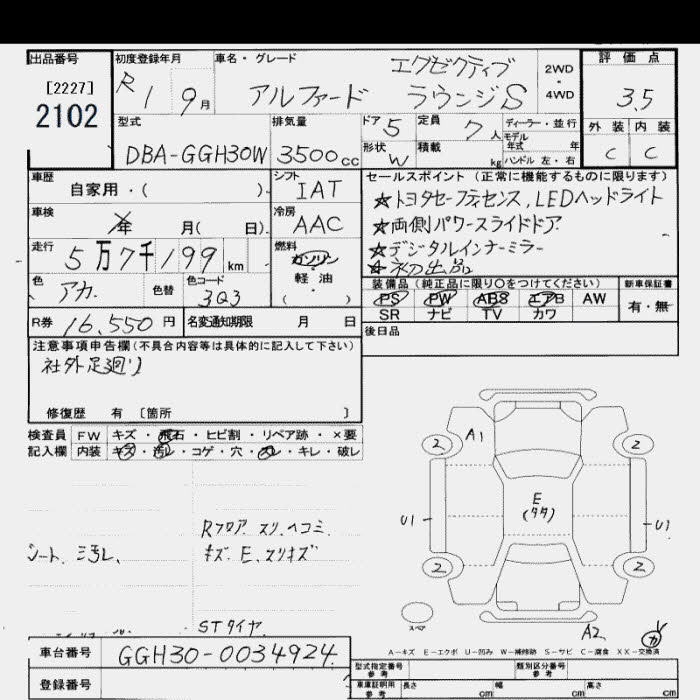 出品番号
[2227]
2102
初度登録年月
R 1 9月
車名・グレード
エグゼクティブ
アルファード ラウンジS
2WD
・
4WD
評価点
3.5
外装 内装
C C
型式
DBA-GGH30W
排気量
3500cc
ドア 5
形状 W
定員 7人
積載 kg
ディーラー・並行
モデル年式 年
ハンドル 左・右
車歴
自家用・( )
シフト
IAT
車検
年 月( 日)
冷房
AAC
走行
5万7千199km
燃料
ガソリン
・
軽油
( )
色
アカ
色替
色コード
3Q3
R券 16,550円
名変通知期限 月 日
セールスポイント (正常に機能するものに限ります)
☆トヨタセーフティセンス,LEDヘッドライト
☆両側パワースライドドア
☆デジタルインナーミラー
☆初出品
装備品(純正品に限り○をつけてください)
PS PW ABS エアB AW
SR ナビ TV カワ
新車保証書
有・無
後日品
注意事項申告欄(不具合内容等は具体的に記入して下さい)
社外足廻り
修復歴 有 〔箇所 〕
検査員 FW キズ・飛石・ヒビ割・リペア跡・×要
記入欄 内装 キズ・汚レ・コゲ・穴・スレ・キレ・破レ
Rフロア.スリ.ヘコミ.
シート.ミ汚レ.
キズ.E.スリキズ
STタイヤ
A1
2 2
E
(タタ)
U1 U1
2 2
スペア
A2
A-キズ E-エクボ U-凹み W-補修跡 S-サビ C-腐食 XX-交換済
車台番号 GGH30-0034924
登録番号
型式指定番号 参考
類別区分番号 参考
車庫証明用 参考 長さ cm 幅 cm 高さ cm